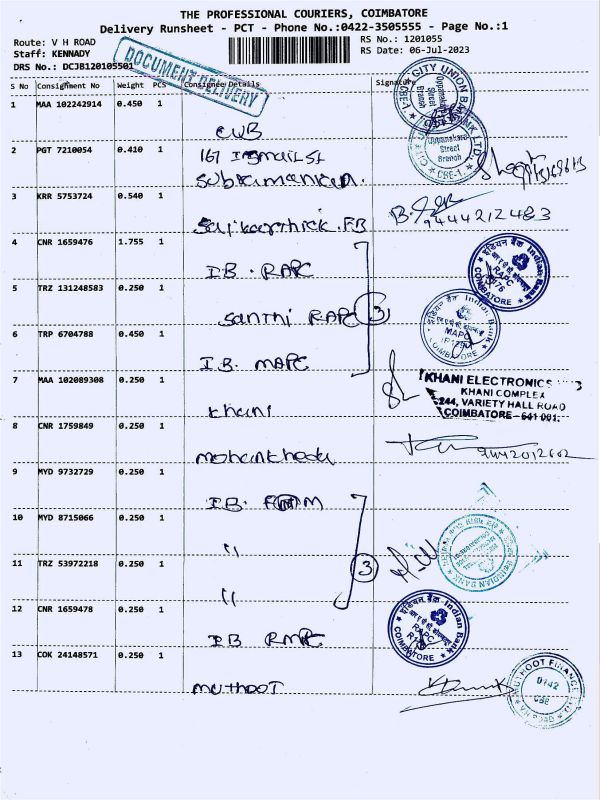 THE PROFESSIONAL COURIERS, COIMBATORE
Delivery Runsheet - PCT - Phone No.:0422-3505555 - Page No.:1
Route: V H ROAD
RS No.: 1201055
Staff: KENNADY
RS Date: 06-Jul-2023
DRS No.: DCJB120105501
DOCUMENT DELIVERY
S No Consignment No Weight PCS Consignee Details Signature
1 MAA 102242914 0.450 1
CUB
CITY UNION BANK LTD.
Oppanakara Street Branch
CBE-1
2 PGT 7210054 0.410 1
167
Oppanakara Street Branch
CBE-1
3 KRR 5753724 0.540 1
9444212483
4 CNR 1659476 1.755 1
I.B. RAPC
इंडियन बैंक Indian Bank
RAPC
COIMBATORE
5 TRZ 131248583 0.250 1
Santhi RAPC
3
6 TRP 6704788 0.450 1
I.B. MAPC
Indian Bank
MAPC
COIMBATORE
7 MAA 102089308 0.250 1
Khani
KHANI ELECTRONICS
KHANI COMPLEX
244, VARIETY HALL ROAD
COIMBATORE - 641 001.
8 CNR 1759849 0.250 1
9442012602
9 MYD 9732729 0.250 1
I.B.
10 MYD 8715066 0.250 1
"
INDIAN BANK
11 TRZ 53972218 0.250 1
"
3
12 CNR 1659478 0.250 1
IB RAPC
इंडियन बैंक - Indian Bank
RAPC
COIMBATORE
13 COK 24148571 0.250 1
Muthoot
MUTHOOT FINANCE
0142
CBE
V.H ROAD